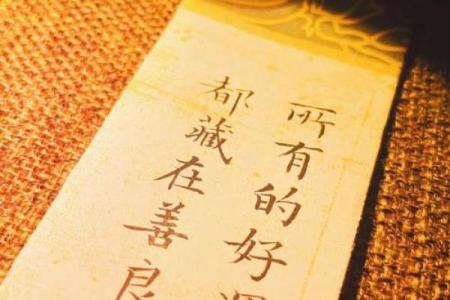 所有的好
都藏在善良